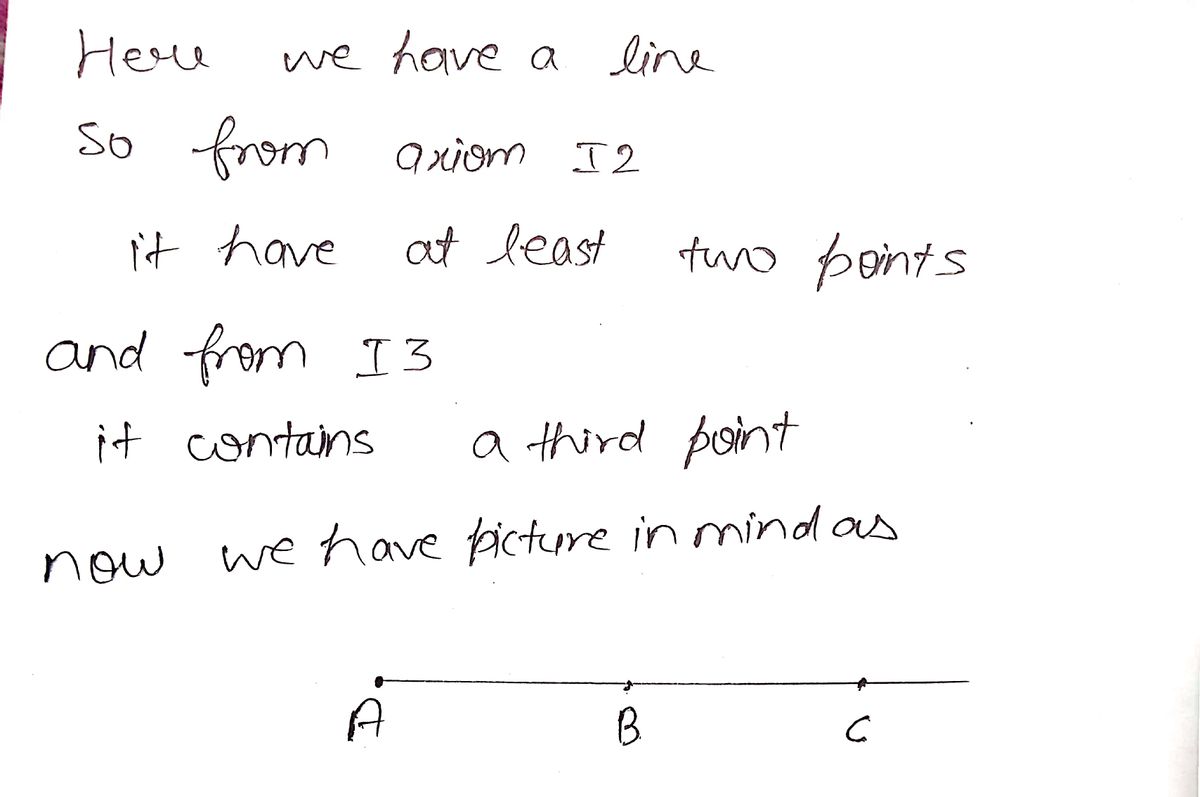 Here we have a line
so from axiom I2
it have at least two points
and from I3
it contains a third point
now we have picture in mind as
A B C